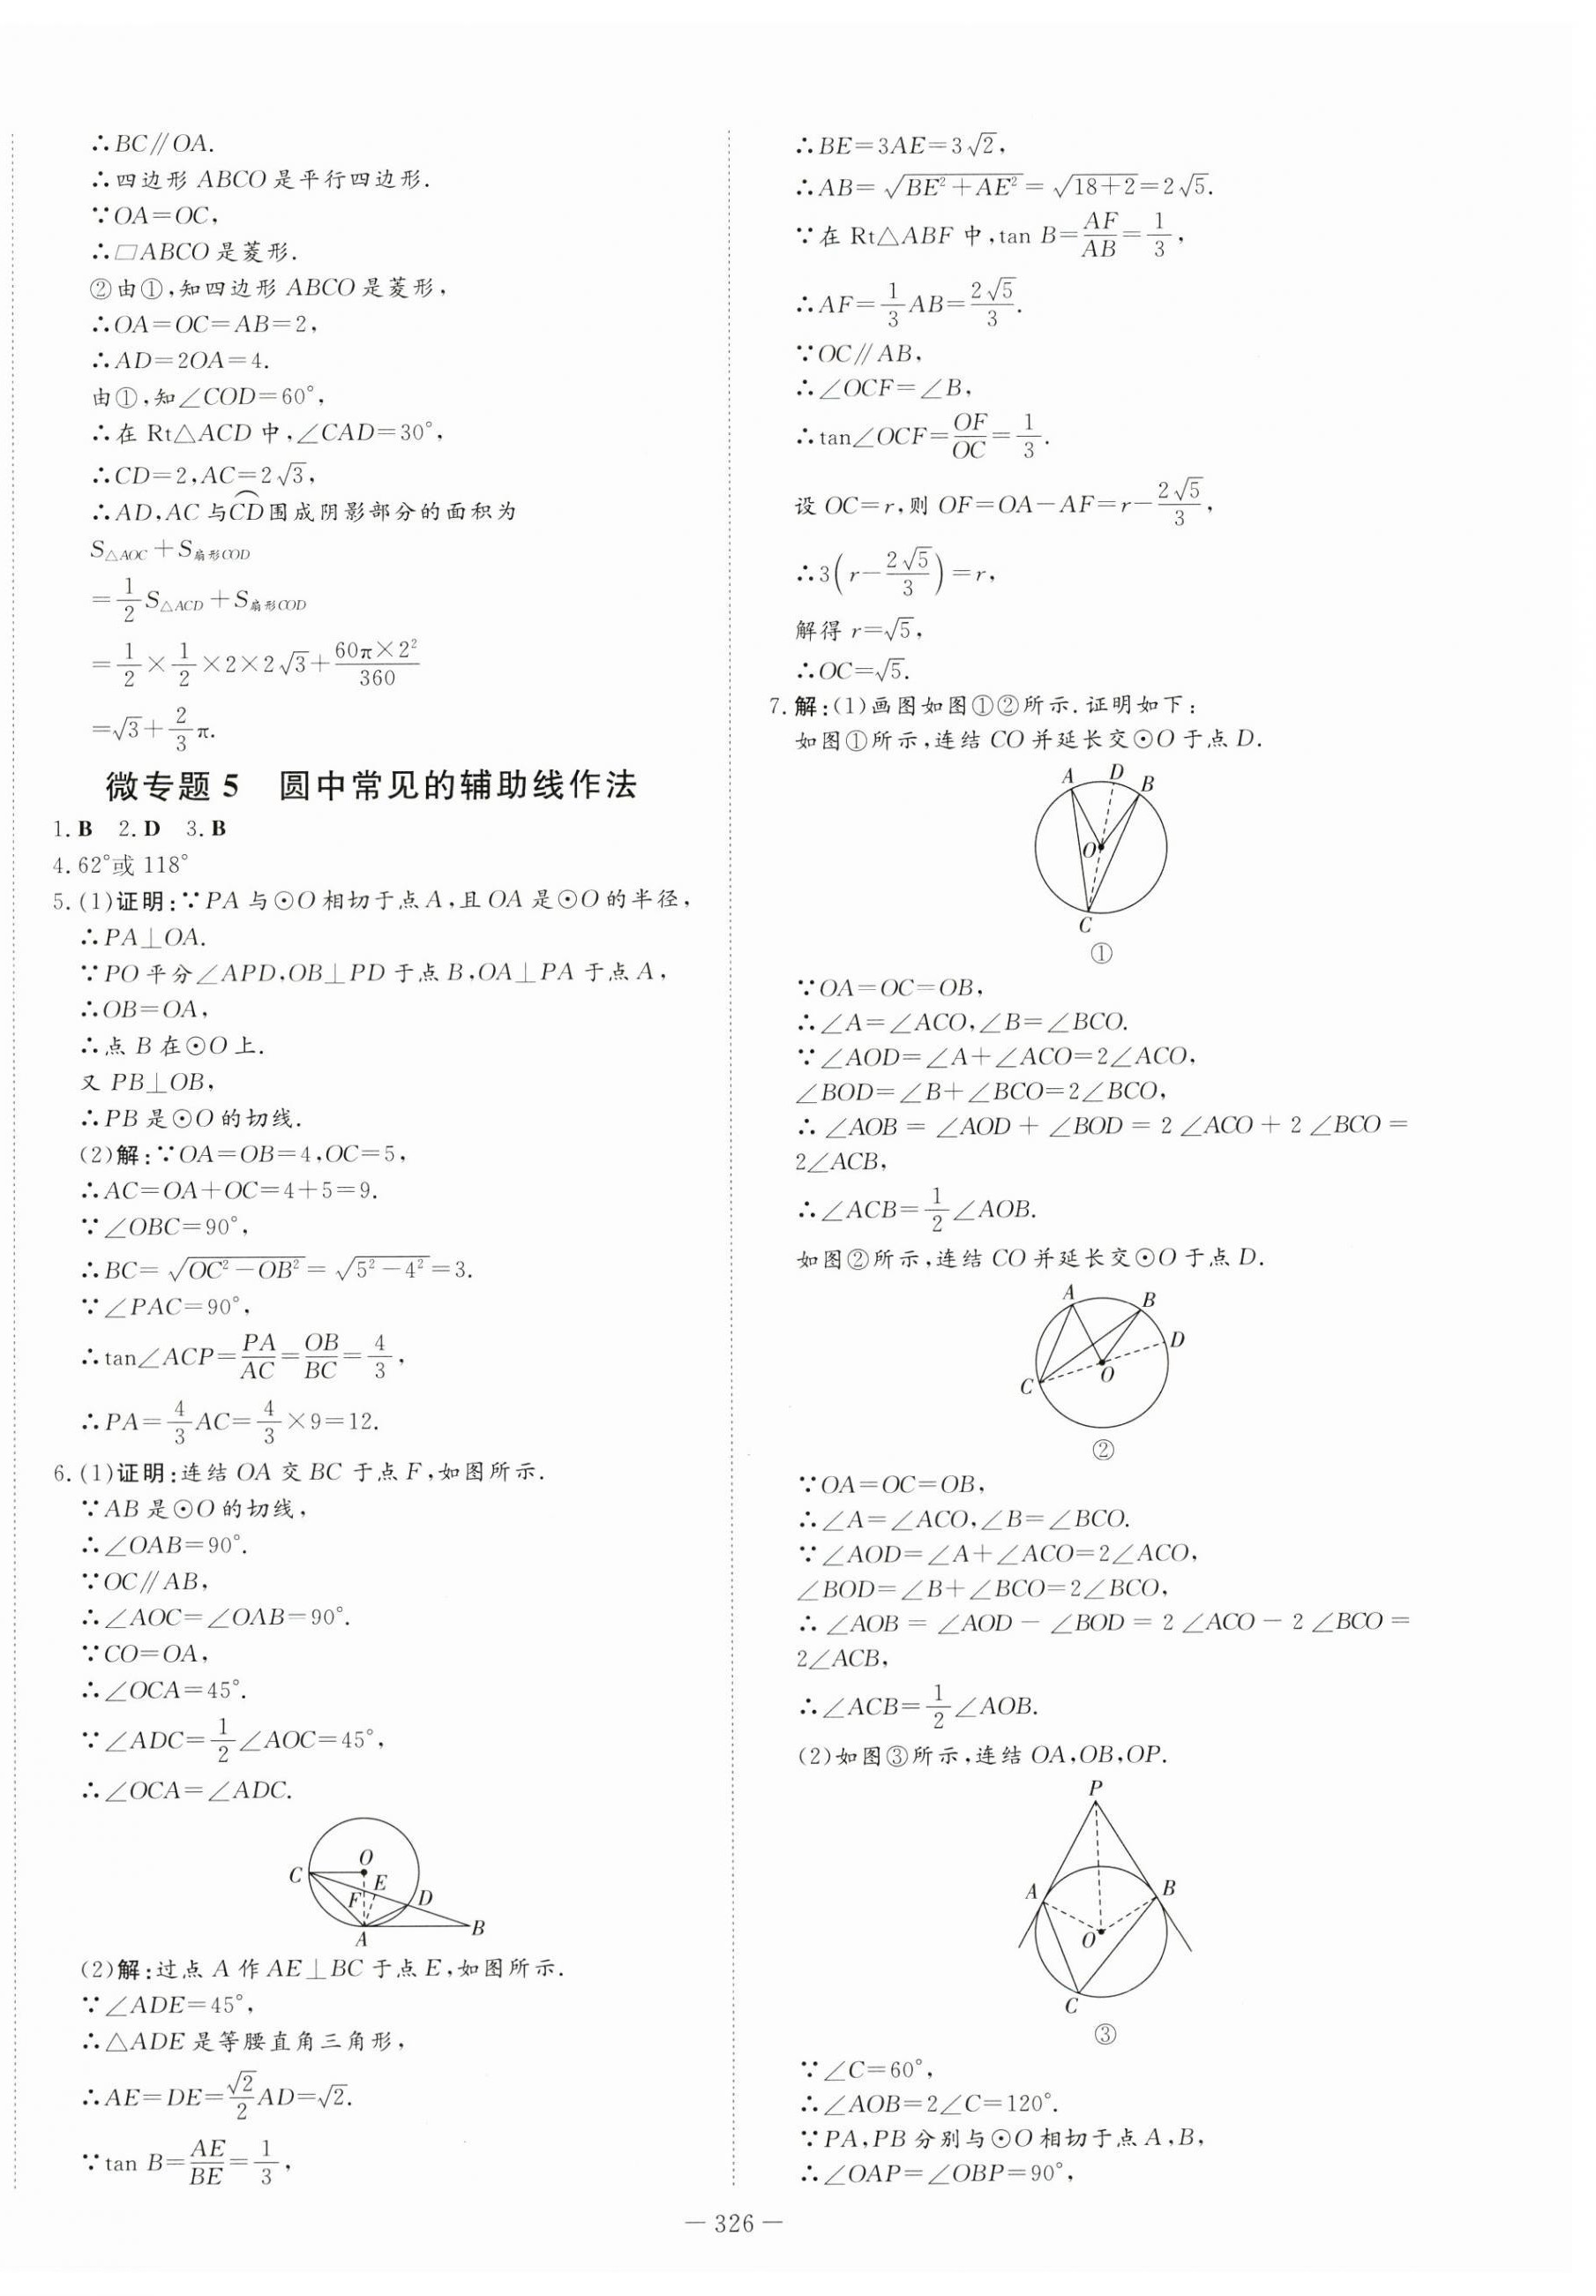 ∴BC∥OA.
∴四边形 ABCO 是平行四边形.
∵OA=OC,
∴□ABCO 是菱形.
②由①,知四边形 ABCO 是菱形,
∴OA=OC=AB=2,
∴AD=2OA=4.
由①,知∠COD=60°,
∴在 Rt△ACD 中,∠CAD=30°,
∴CD=2,AC=2√3,
∴AD,AC 与⌒CD围成阴影部分的面积为
S△AOC+S扇形COD
=1/2 S△ACD+S扇形COD
=1/2×1/2×2×2√3+60π×2²/360
=√3+2/3 π.
微专题 5 圆中常见的辅助线作法
1.B 2.D 3.B
4.62°或 118°
5.(1)证明:∵PA 与⊙O 相切于点 A,且 OA 是⊙O 的半径,
∴PA⊥OA.
∵PO 平分∠APD,OB⊥PD 于点 B,OA⊥PA 于点 A,
∴OB=OA,
∴点 B 在⊙O 上.
又 PB⊥OB,
∴PB 是⊙O 的切线.
(2)解:∵OA=OB=4,OC=5,
∴AC=OA+OC=4+5=9.
∵∠OBC=90°,
∴BC=√(OC²-OB²)=√(5²-4²)=3.
∵∠PAC=90°,
∴tan∠ACP=PA/AC=OB/BC=4/3,
∴PA=4/3 AC=4/3×9=12.
6.(1)证明:连结 OA 交 BC 于点 F,如图所示.
∵AB 是⊙O 的切线,
∴∠OAB=90°.
∵OC∥AB,
∴∠AOC=∠OAB=90°.
∵CO=OA,
∴∠OCA=45°.
∵∠ADC=1/2∠AOC=45°,
∴∠OCA=∠ADC.
O
C
E
F
D
B
A
(2)解:过点 A 作 AE⊥BC 于点 E,如图所示.
∵∠ADE=45°,
∴△ADE 是等腰直角三角形,
∴AE=DE=√2/2 AD=√2.
∵tan B=AE/BE=1/3,
∴BE=3AE=3√2,
∴AB=√(BE²+AE²)=√(18+2)=2√5.
∵在 Rt△ABF 中,tan B=AF/AB=1/3,
∴AF=1/3 AB=2√5/3.
∵OC∥AB,
∴∠OCF=∠B,
∴tan∠OCF=OF/OC=1/3.
设 OC=r,则 OF=OA-AF=r-2√5/3,
∴3(r-2√5/3)=r,
解得 r=√5,
∴OC=√5.
7.解:(1)画图如图①②所示.证明如下:
如图①所示,连结 CO 并延长交⊙O 于点 D.
A
D
B
O
C
①
∵OA=OC=OB,
∴∠A=∠ACO,∠B=∠BCO.
∵∠AOD=∠A+∠ACO=2∠ACO,
∠BOD=∠B+∠BCO=2∠BCO,
∴∠AOB=∠AOD+∠BOD=2∠ACO+2∠BCO=
2∠ACB,
∴∠ACB=1/2∠AOB.
如图②所示,连结 CO 并延长交⊙O 于点 D.
A
B
D
O
C
②
∵OA=OC=OB,
∴∠A=∠ACO,∠B=∠BCO.
∵∠AOD=∠A+∠ACO=2∠ACO,
∠BOD=∠B+∠BCO=2∠BCO,
∴∠AOB=∠AOD-∠BOD=2∠ACO-2∠BCO=
2∠ACB,
∴∠ACB=1/2∠AOB.
(2)如图③所示,连结 OA,OB,OP.
P
A
B
O
C
③
∵∠C=60°,
∴∠AOB=2∠C=120°.
∵PA,PB 分别与⊙O 相切于点 A,B,
∴∠OAP=∠OBP=90°,
— 326 —